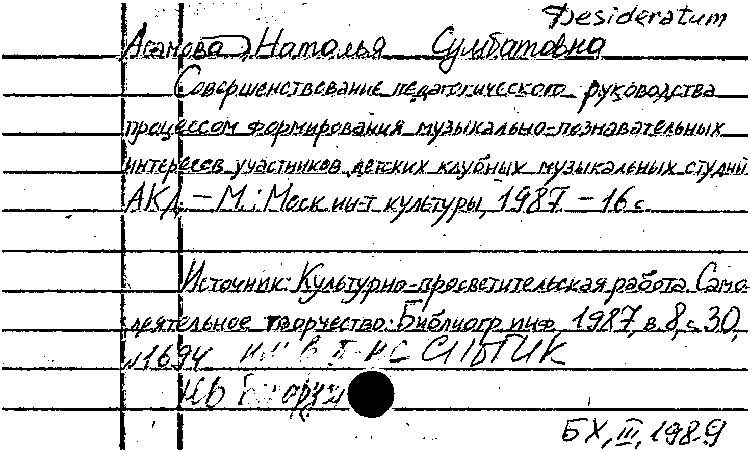 Desideratum
Аганова, Наталья Сумбатовна
Совершенствование педагогического руководства
процессом формирования музыкально-познавательных
интересов участников детских клубных музыкальных студий
АКД. – М.: Моск ин-т культуры, 1987 – 16 с.
Источник: Культурно-просветительская работа. Само-
деятельное творчество: Библиогр. инф., 1987, в. 8, с. 30,
№1694
НБ
БХ, III, 1989